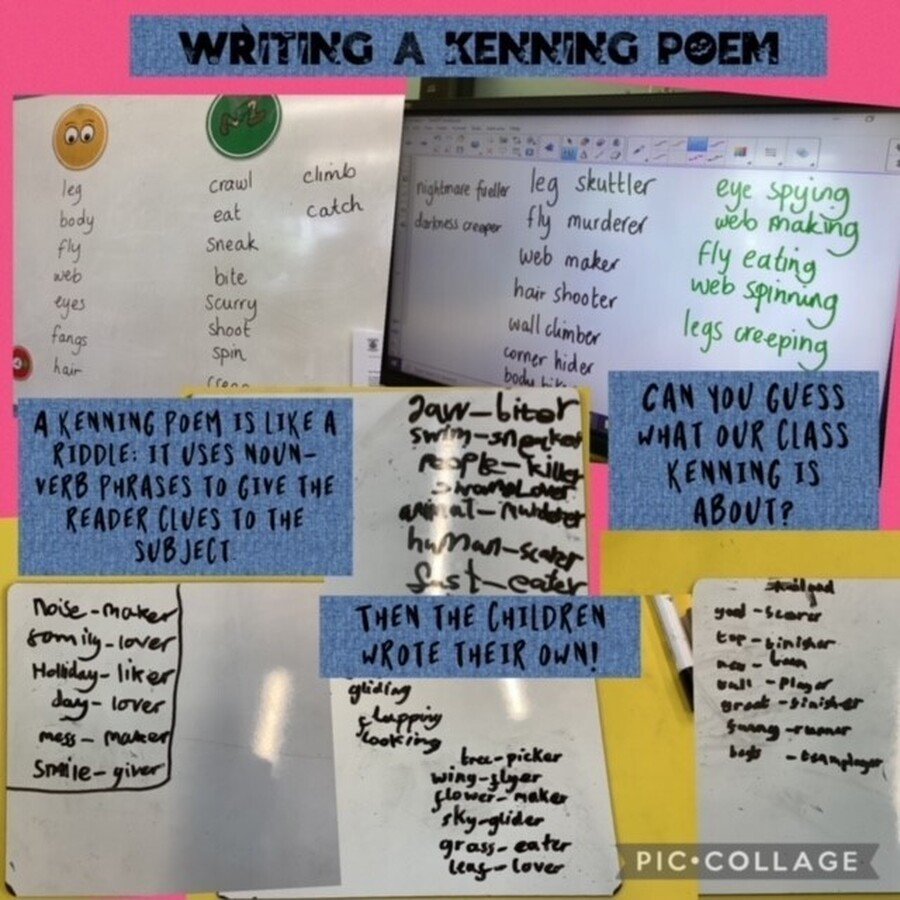 WRITING A KENNING POEM
leg
body
fly
web
eyes
fangs
hair
crawl
eat
sneak
bite
scurry
shoot
spin
climb
catch
nightmare fueller
darkness creeper
leg skuttler
fly murderer
web maker
hair shooter
wall climber
corner hider
body
eye spying
web making
fly eating
web spinning
legs creeping
A KENNING POEM IS LIKE A
RIDDLE: IT USES NOUN-
VERB PHRASES TO GIVE THE
READER CLUES TO THE
SUBJECT
CAN YOU GUESS
WHAT OUR CLASS
KENNING IS
ABOUT?
Jaw-biter
swim-sneaker
people-killer
animal-
human-scarer
fast-eater
THEN THE CHILDREN
WROTE THEIR OWN!
Noise-maker
family-lover
Holliday-liker
day-lover
mess-maker
Smile-giver
gliding
flapping
looking
tree-picker
wing-flyer
flower-maker
sky-glider
grass-eater
leaf-lover
goal-scorer
top-finisher
ball-player
great-finisher
funny-runner
-teamplayer
PIC•COLLAGE